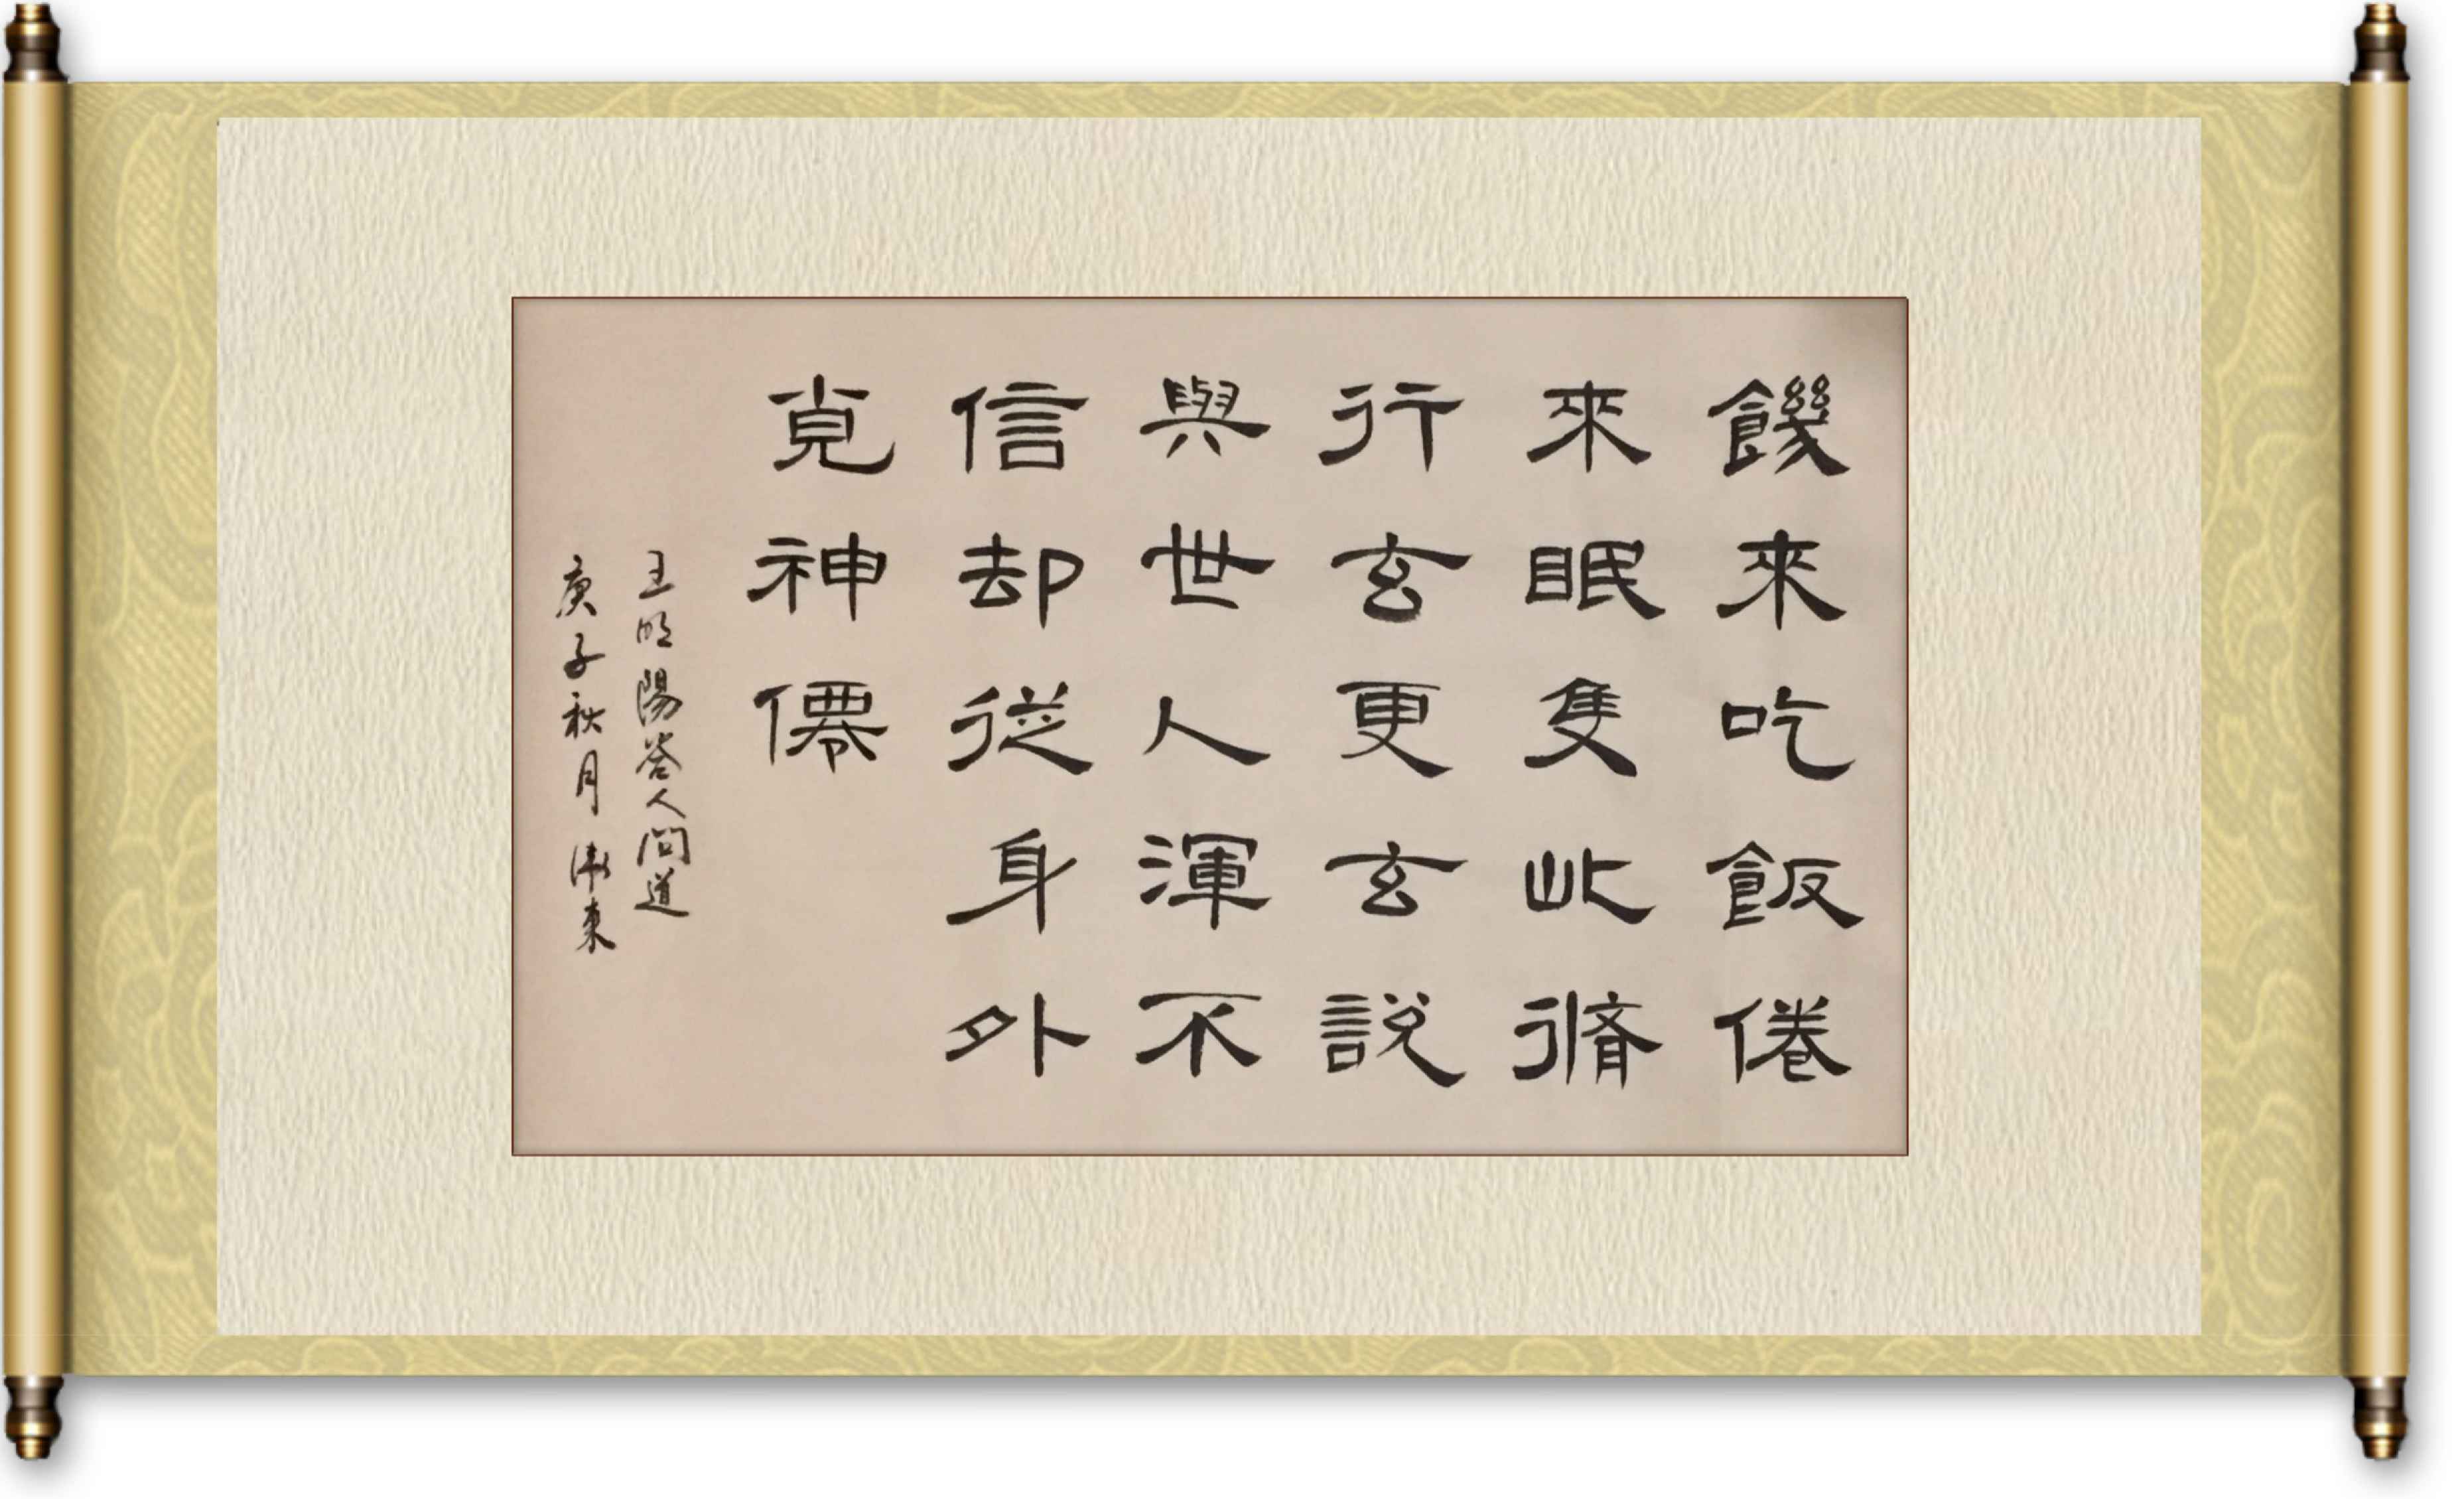 饑來吃飯倦
來眠隻此脩
行玄更玄說
與世人渾不
信却從身外
覓神僊
王明陽答人問道
庚子秋月東